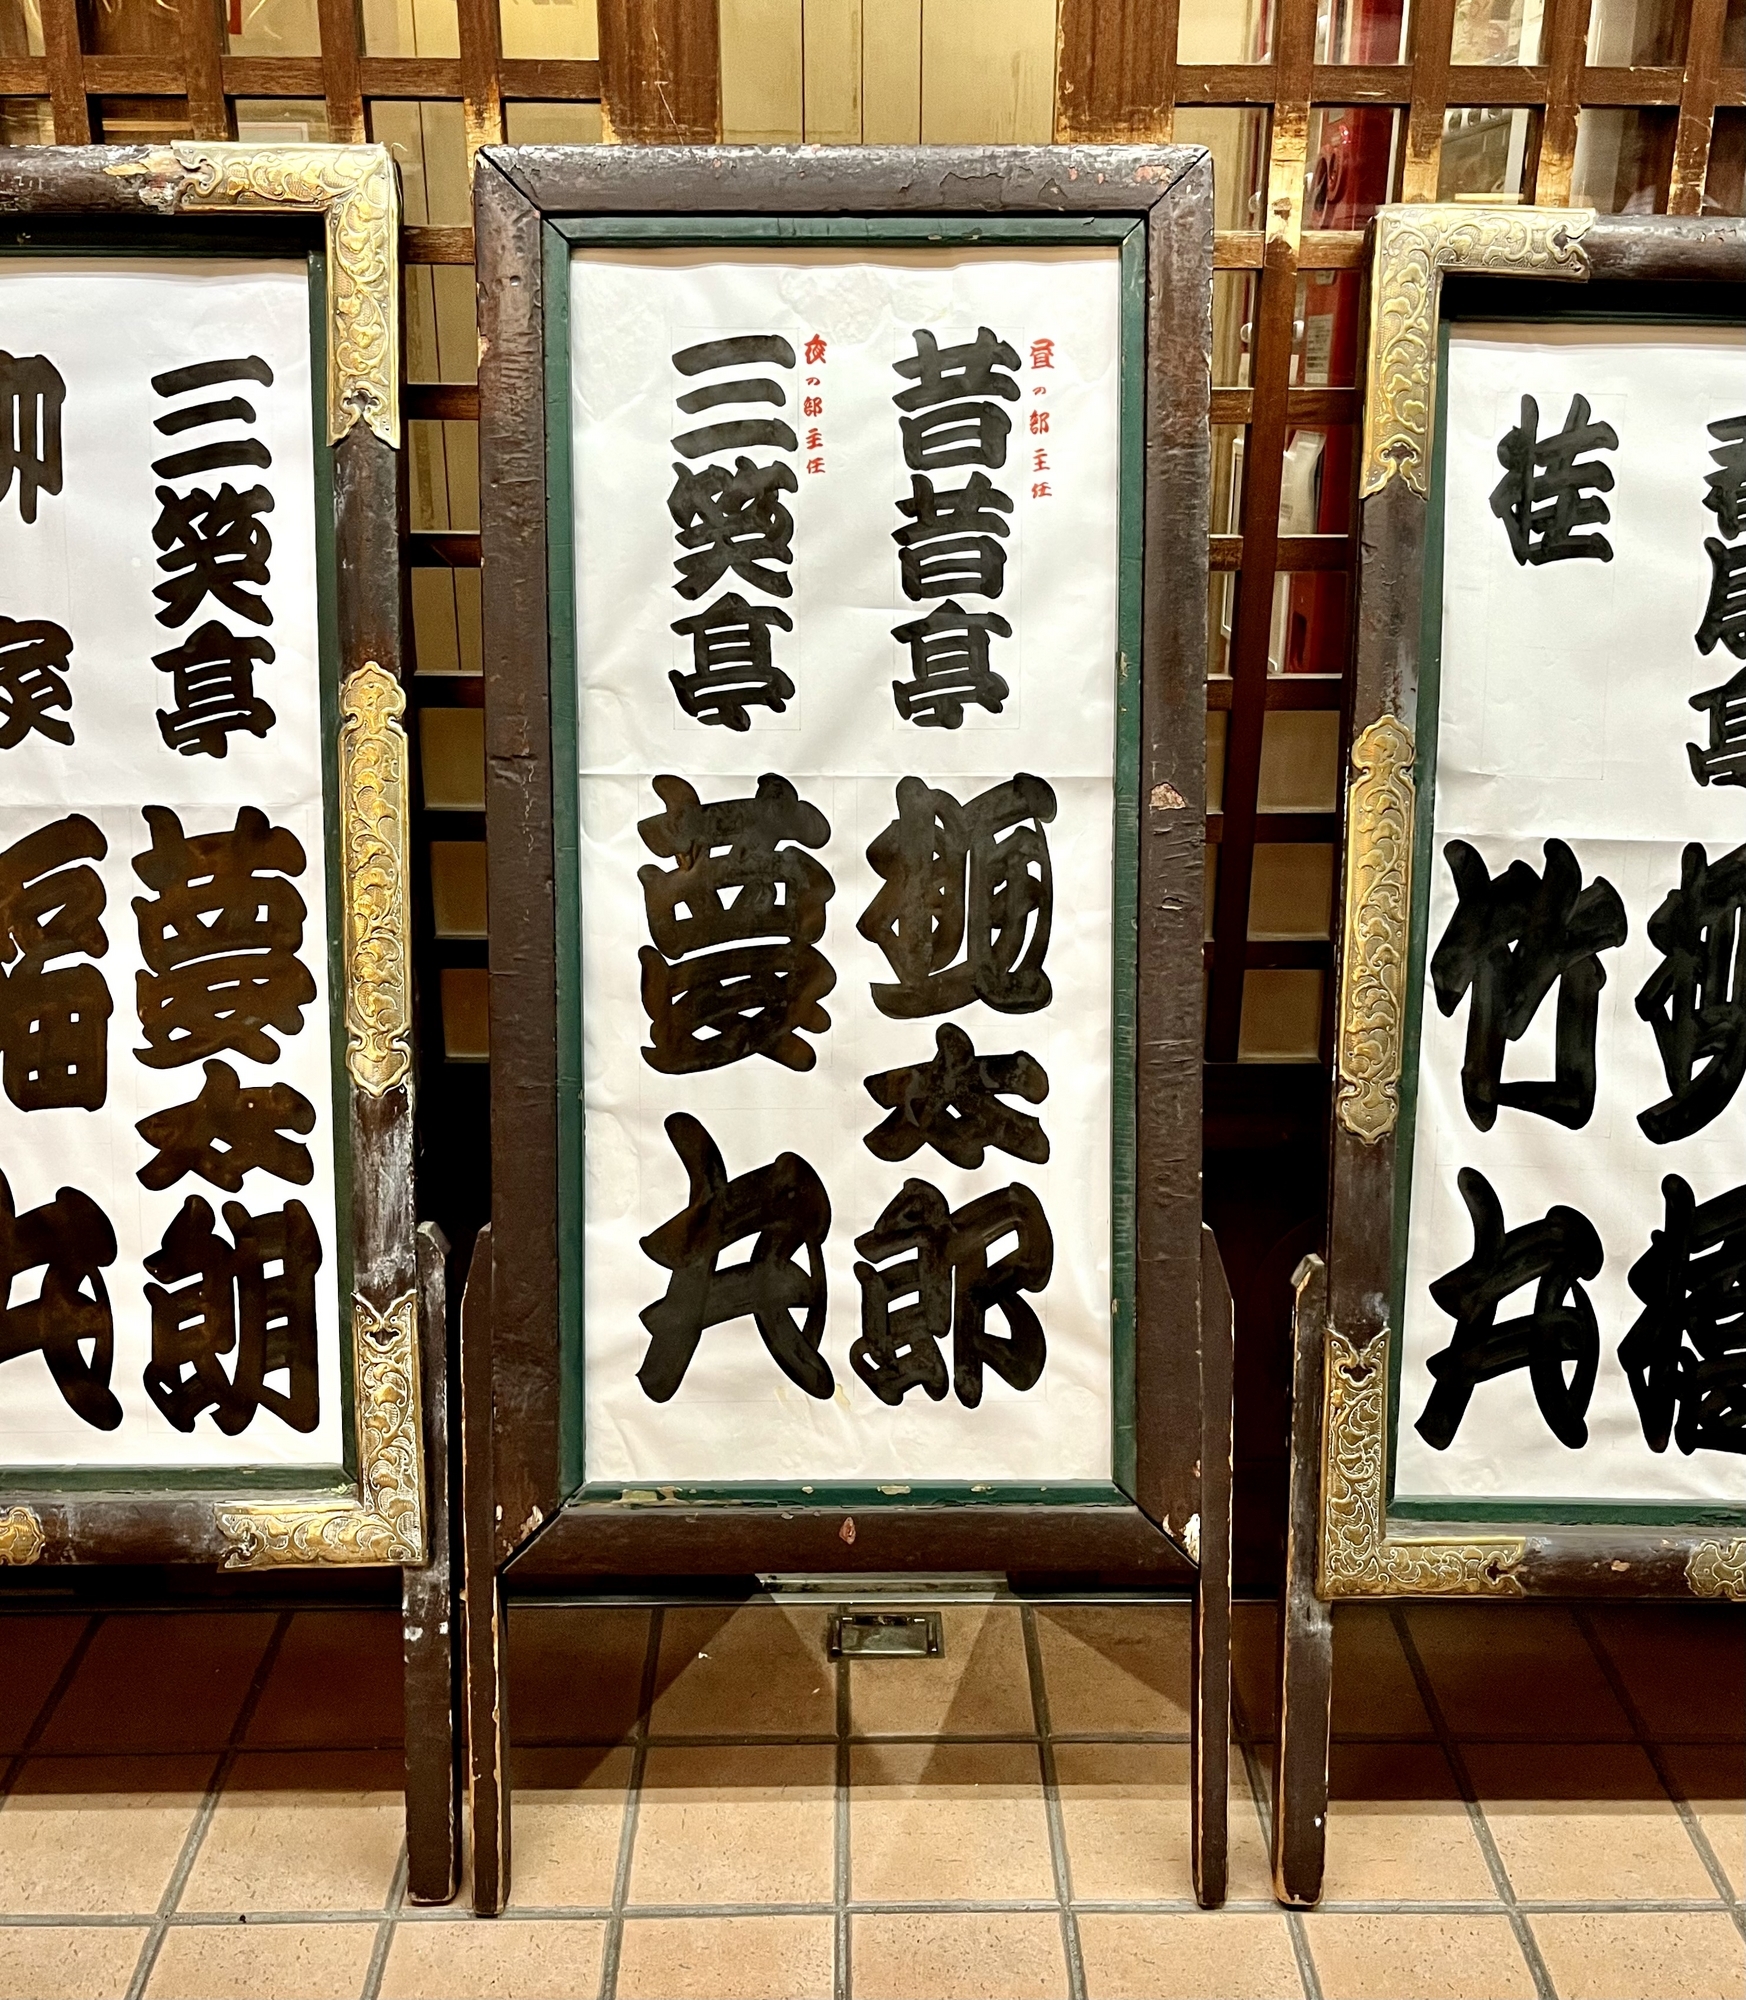 春風亭柳橋
桂竹丸
昼の部主任
昔昔亭桃太郎
夜の部主任
三笑亭夢丸
三笑亭夢太朗
柳家蝠丸